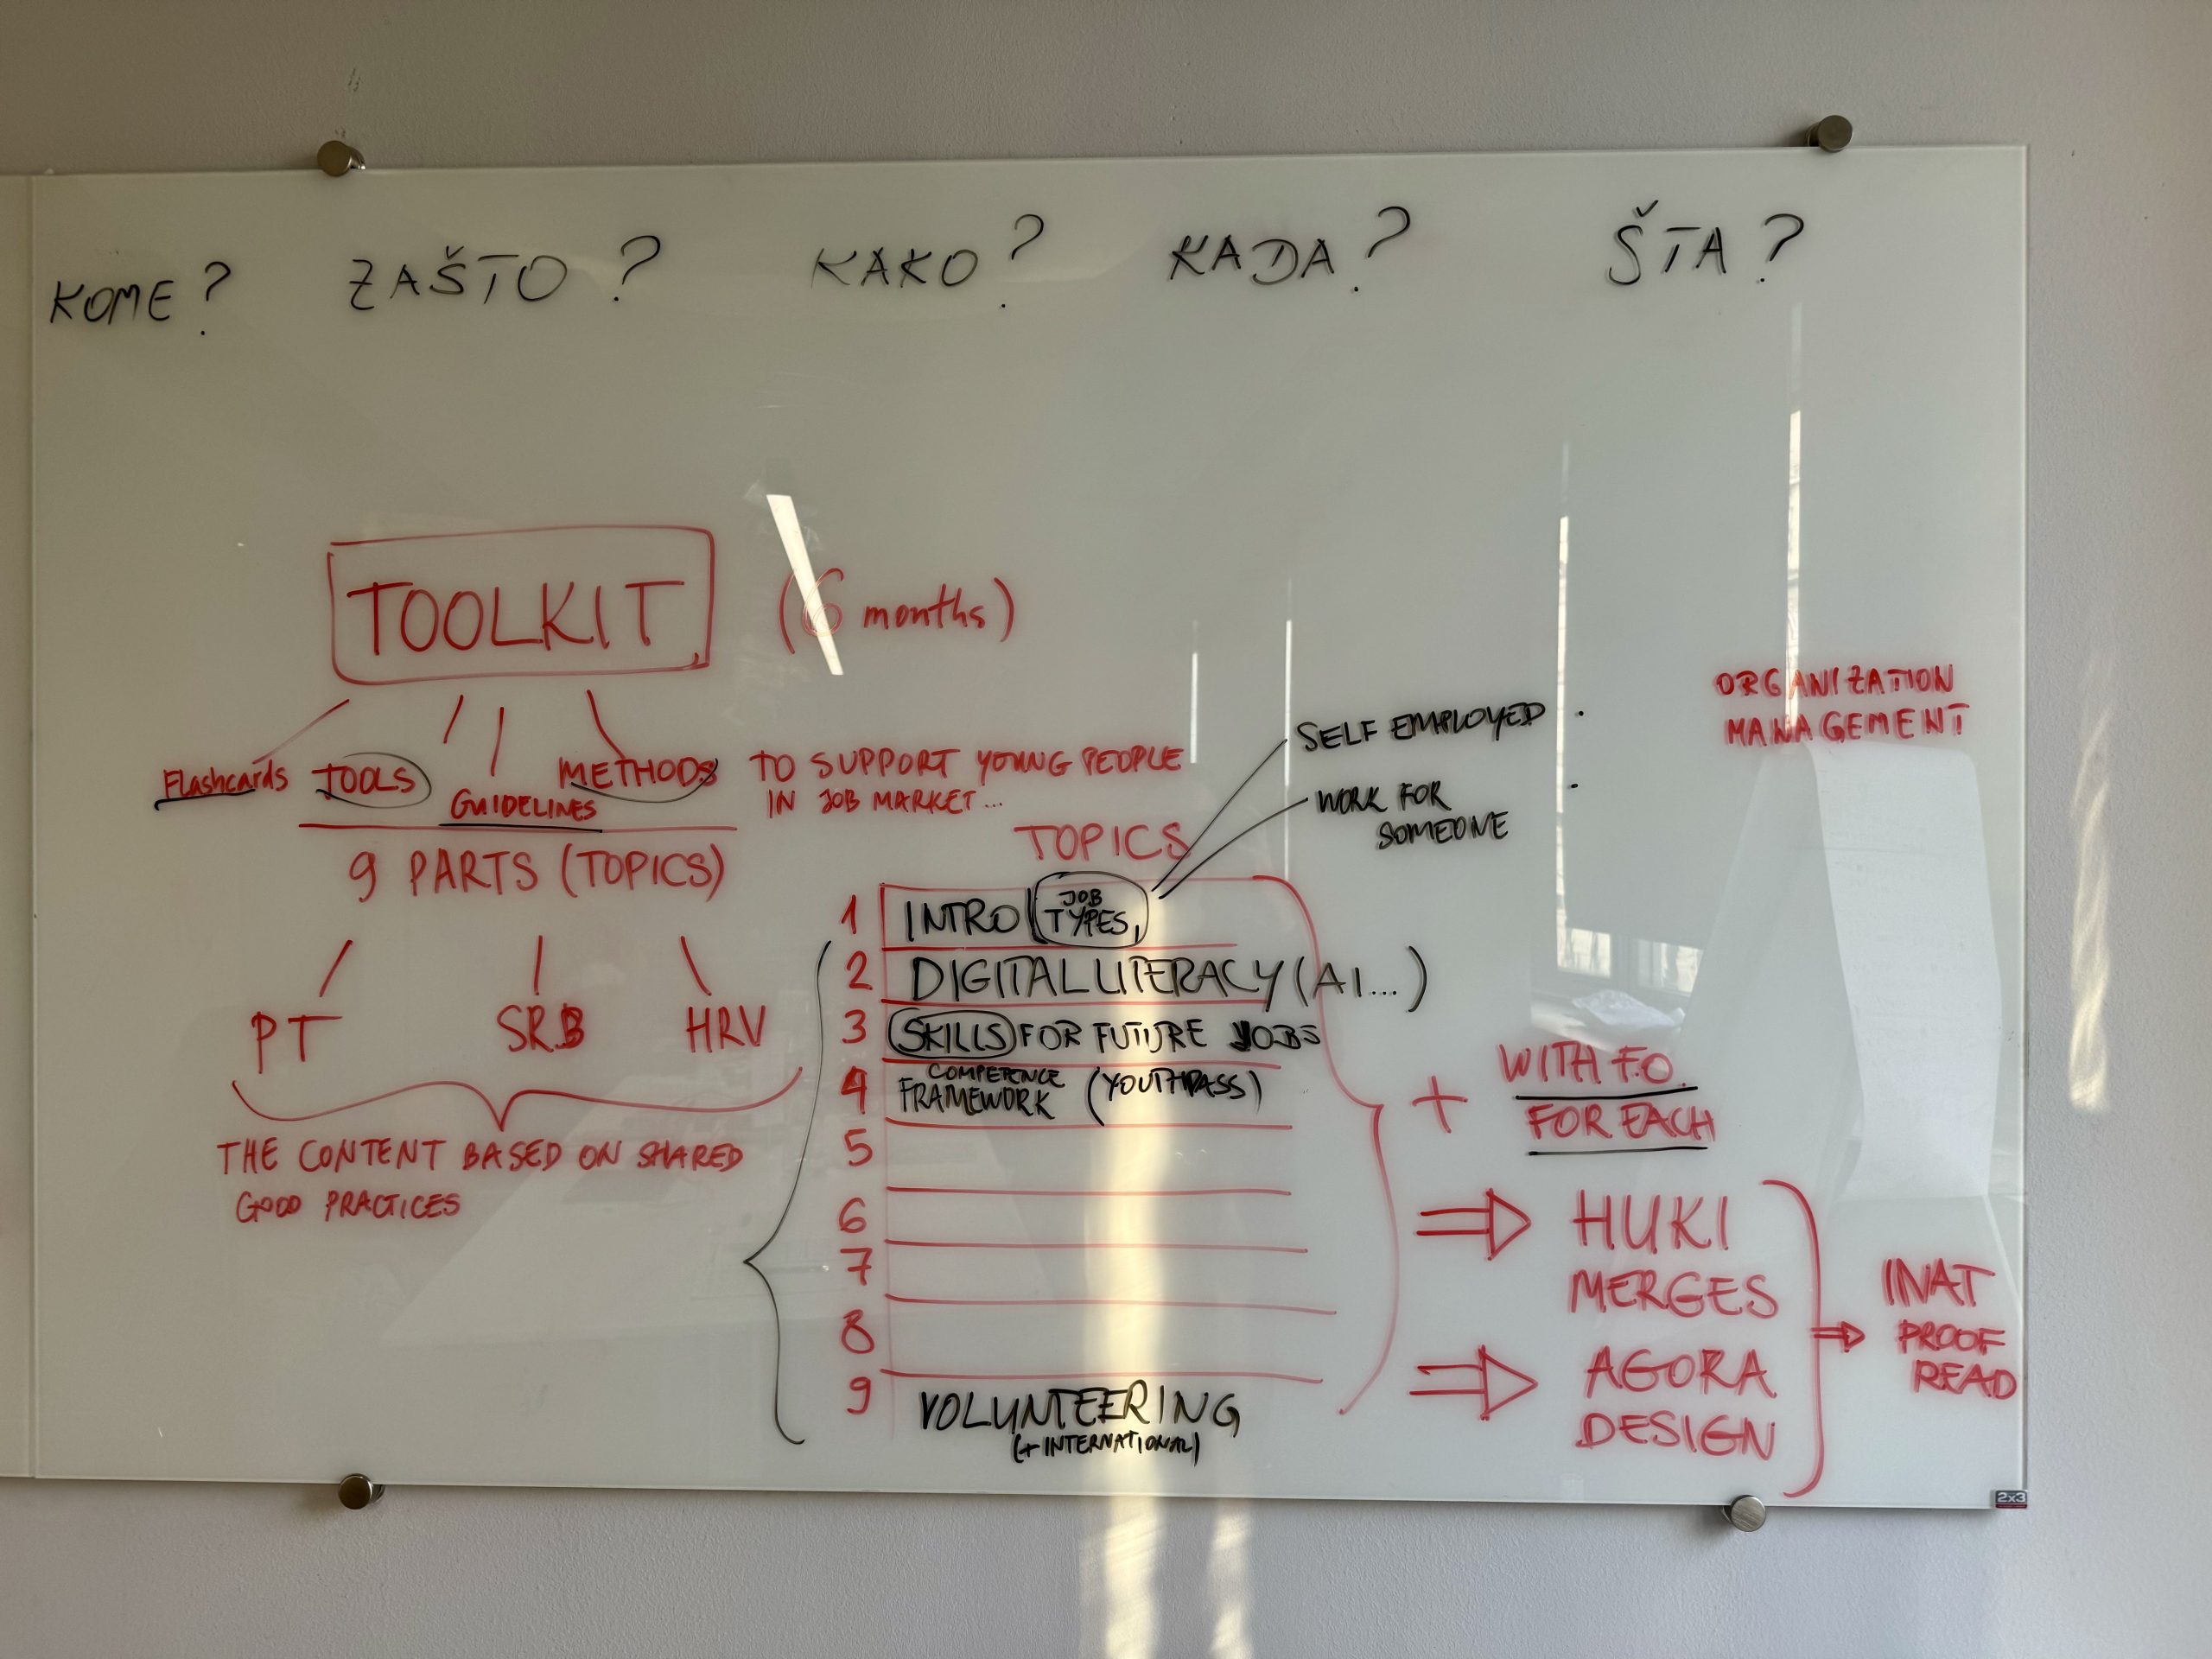 KOME?
ZAŠTO?
KAKO?
KADA?
ŠTA?
TOOLKIT
(6 months)
Flashcards
TOOLS
GUIDELINES
METHODS
TO SUPPORT YOUNG PEOPLE
IN JOB MARKET...
9 PARTS (TOPICS)
PT
SRB
HRV
THE CONTENT BASED ON SHARED
GOOD PRACTICES
TOPICS
1 INTRO (JOB TYPES,
SELF EMPLOYED
WORK FOR
SOMEONE
2 DIGITAL LITERACY (AI...)
3 SKILLS FOR FUTURE JOBS
4 COMPETENCE
FRAMEWORK (YOUTHPASS)
5
6
7
8
9 VOLUNTEERING
(+ INTERNATIONAL)
ORGANIZATION
MANAGEMENT
+ WITH F.O.
FOR EACH
⇒ HUKI
MERGES
⇒ AGORA
DESIGN
⇒ INAT
PROOF
READ
2x3